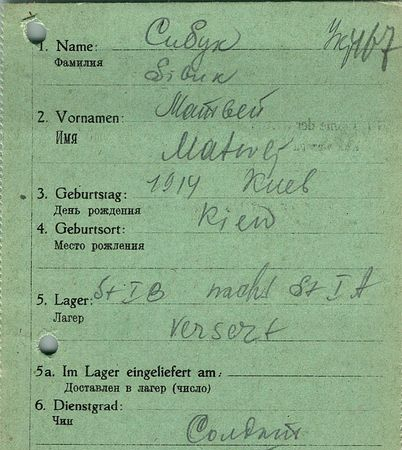 1. Name: Сибук
Фамилия Sibuk
2. Vornamen: Матвей
Имя Matwej
3. Geburtstag: 1914 Киев
День рождения
4. Geburtsort: Kiew
Место рожления
5. Lager: St I B nach St I A
Лагер versetzt
5a. Im Lager eingeliefert am:
Доставлен в лагер (число)
6. Dienstgrad:
Чин Солдат